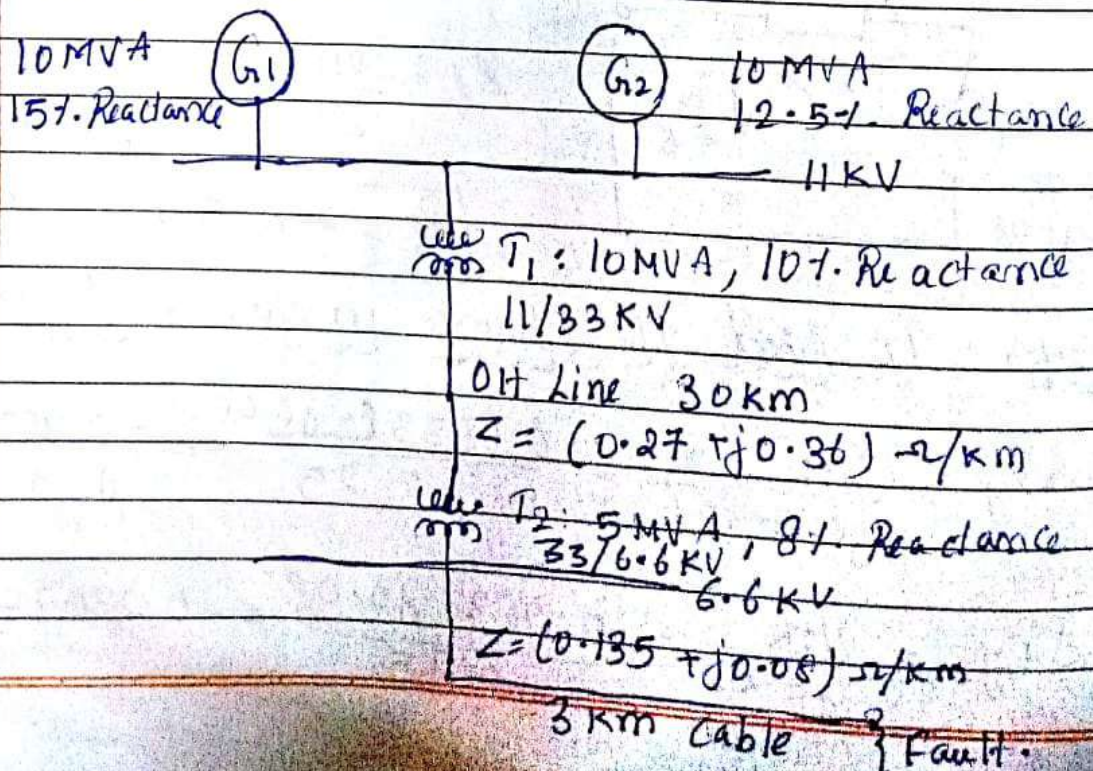 10 MVA
15%. Reactance
G1
G2
10 MVA
12.5%. Reactance
11 KV
T1 : 10 MVA, 10%. Reactance
11/33 KV
OH Line 30 km
Z = (0.27 + j0.36) Ω/km
T2: 5 MVA, 8%. Reactance
33/6.6 KV
6.6 KV
Z = (0.135 + j0.08) Ω/km
3 km Cable } Fault.